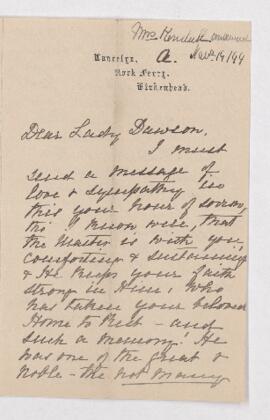 Mrs Kendall answered
A. Nov 29/99
Rock Ferry,
Birkenhead.
Dear Lady Dawson,
I must
send a message of
love & sympathy in
this your hour of sorrow,
tho' I know well, that
the Master is with you,
comforting & sustaining
& He keeps your faith
strong in Him, Who
has taken your beloved
Home to Rest - and
such a memory! He
was one of the great &
noble - the not many